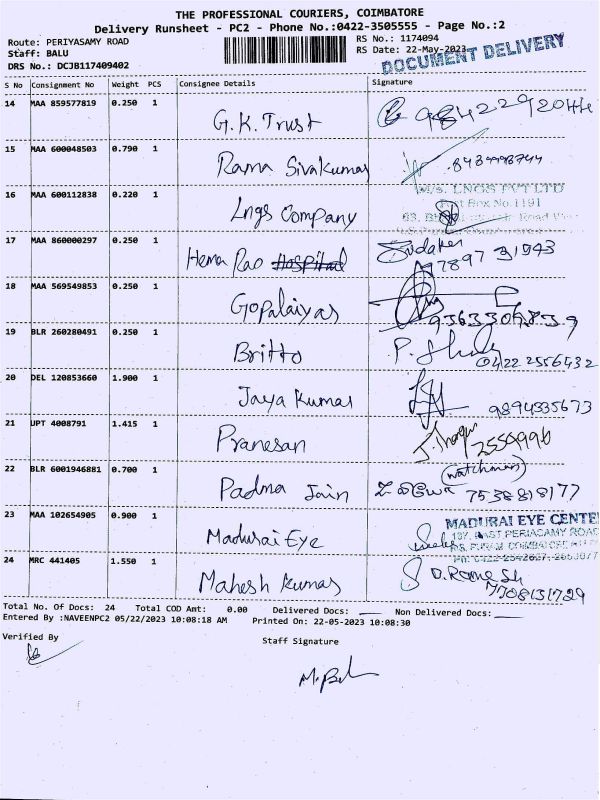 THE PROFESSIONAL COURIERS, COIMBATORE
Delivery Runsheet - PC2 - Phone No.:0422-3505555 - Page No.:2
Route: PERIYASAMY ROAD
RS No.: 1174094
Staff: BALU
RS Date: 22-May-2023
DOCUMENT DELIVERY
DRS No.: DCJB117409402
S No Consignment No Weight PCS Consignee Details Signature
14 MAA 859577819 0.250 1 G.K. Trust 9842292044
15 MAA 600048503 0.790 1 Rama Sivakumar
16 MAA 600112838 0.220 1 Lngs Company
M/s. LNGS PVT LTD
Post Box No.1191
17 MAA 860000297 0.250 1 Hema Rao Hospital Sudaker
7897 31943
18 MAA 569549853 0.250 1 Gopalaiyas
19 BLR 260280491 0.250 1 Britto
0422 2556432
20 DEL 120853660 1.900 1 Jaya Kumar 9894535673
21 UPT 4008791 1.415 1 Pranesan
(watchman)
22 BLR 6001946881 0.700 1 Padma Jain 7538818177
23 MAA 102654905 0.900 1 Madurai Eye
MADURAI EYE CENTE
24 MRC 441405 1.550 1 Mahesh Kumar D. Romesh
7708131729
Total No. Of Docs: 24 Total COD Amt: 0.00 Delivered Docs: Non Delivered Docs:
Entered By :NAVEENPC2 05/22/2023 10:08:18 AM Printed On: 22-05-2023 10:08:30
Verified By
Staff Signature